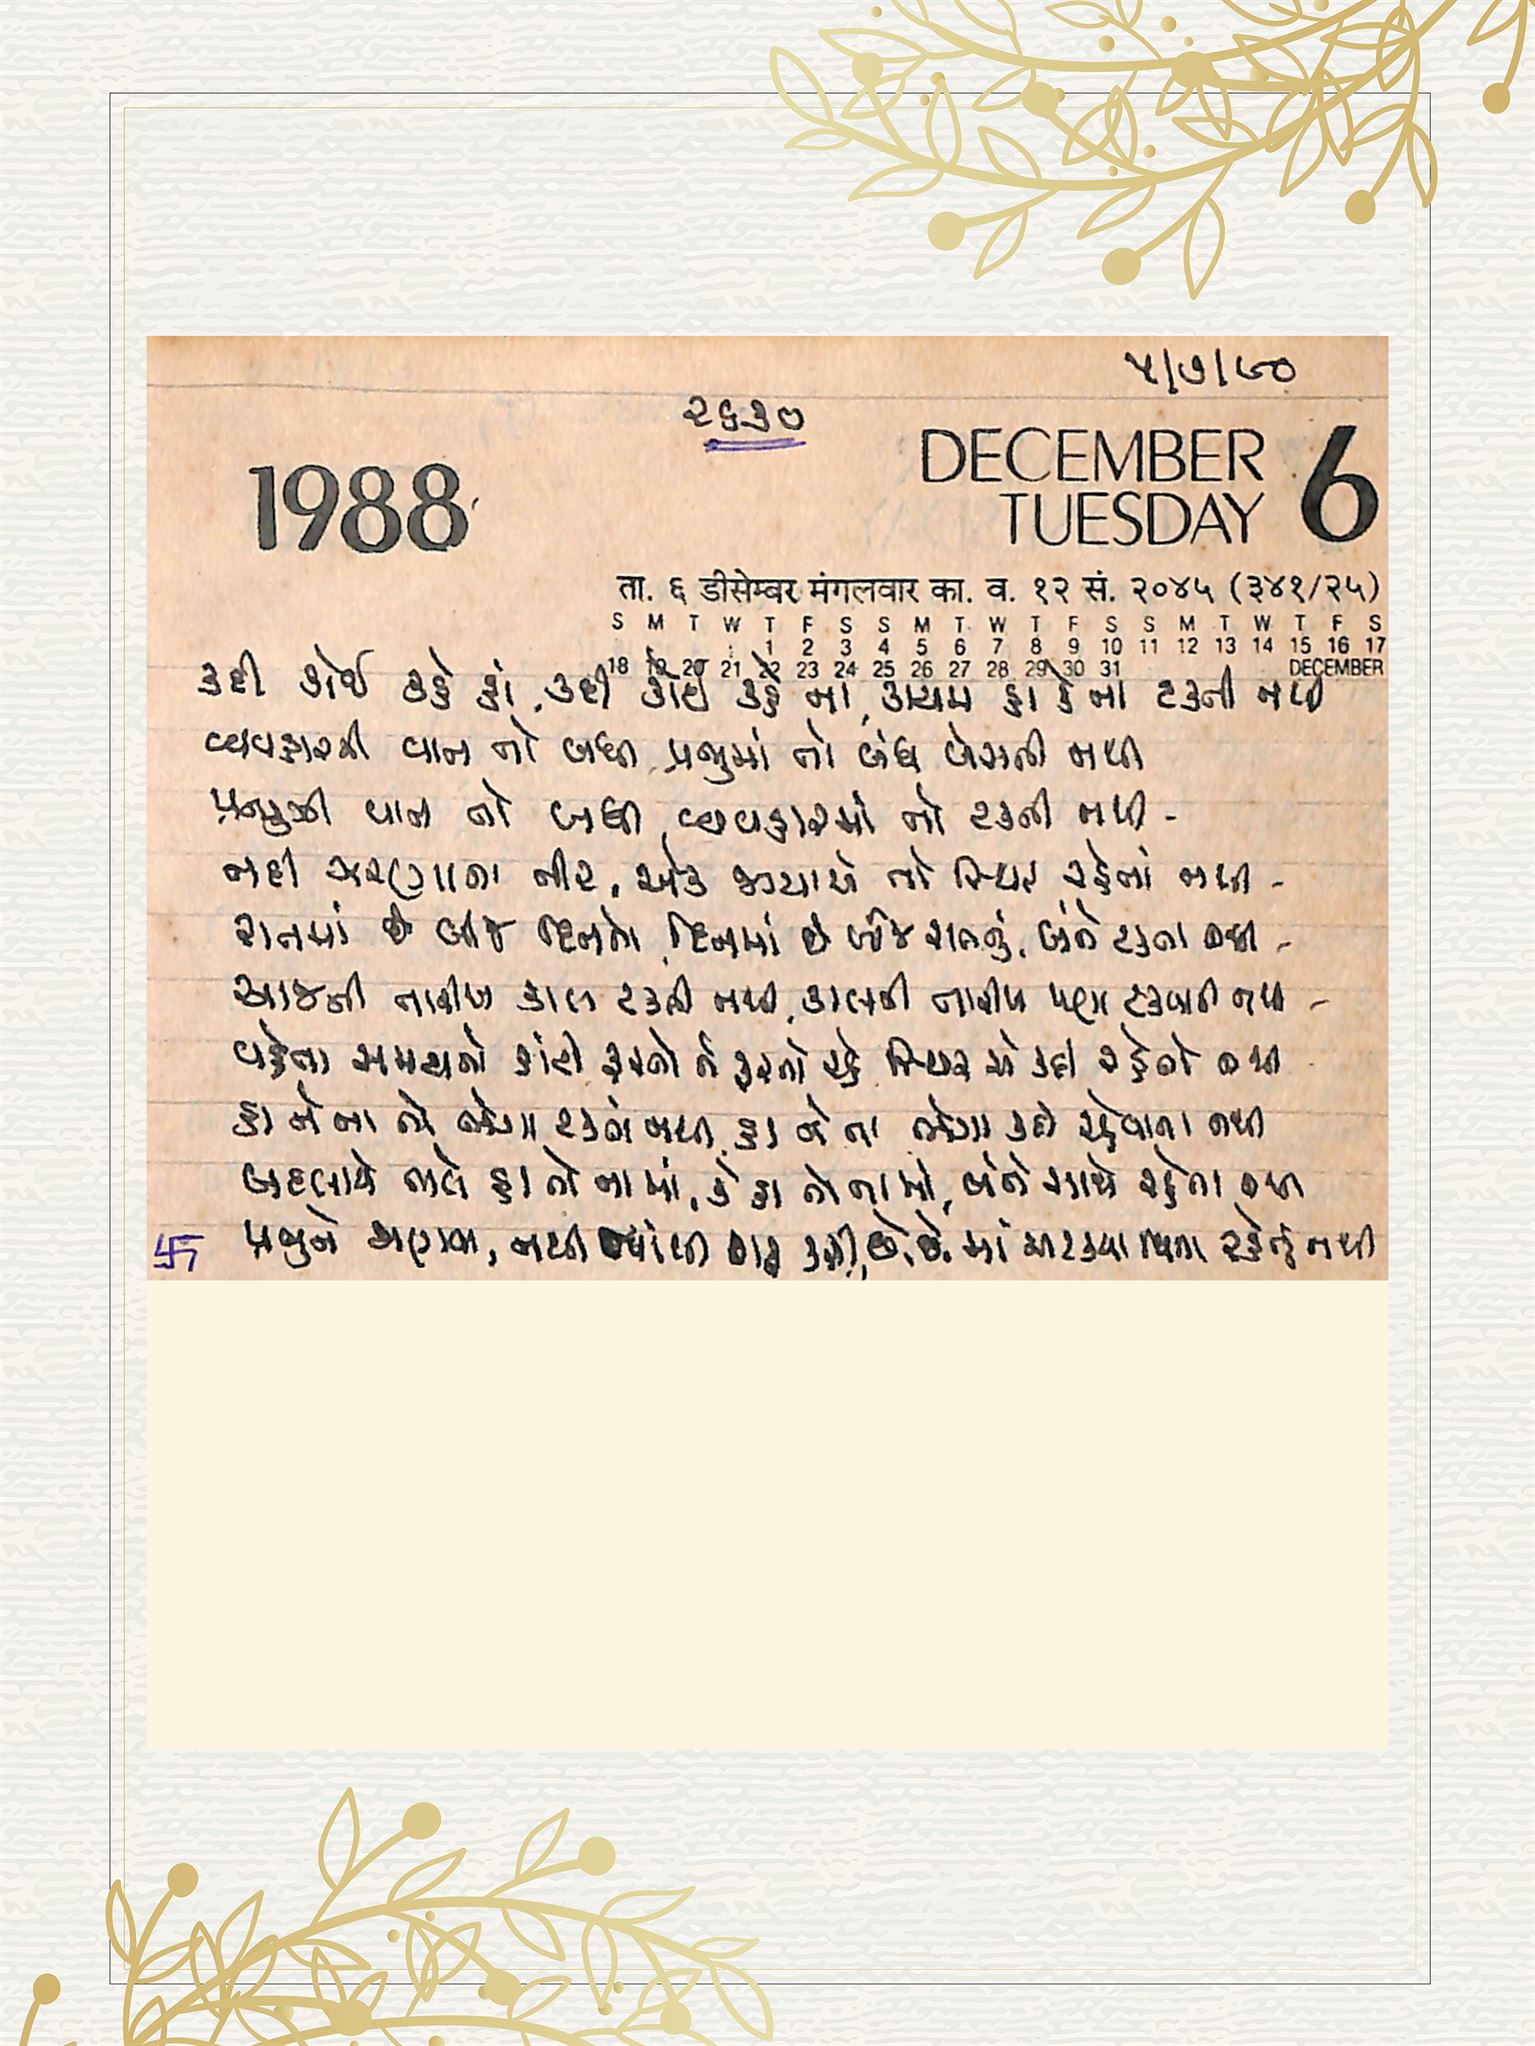 ૫/૭/૯૦
૨૬૩૦
1988
DECEMBER 6
TUESDAY
ता. ६ डीसेम्बर मंगलवार का. व. १२ सं. २०४५ (३४१/२५)
S M T W T F S S M T W T F S S M T W T F S
1 2 3 4 5 6 7 8 9 10 11 12 13 14 15 16 17
18 19 20 21 22 23 24 25 26 27 28 29 30 31 DECEMBER
કદી કોઈ કહે હાં, કદી કોઈ કહે ના, કાયમ હા કે ના ટકતી નથી
વ્યવહારની વાત તો બધી પ્રભુમાં તો બંધ બેસતી નથી
પ્રભુની વાત તો બધી, વ્યવહારમાં તો ટકતી નથી -
નદી ઝરણાના નીર, એક જગ્યાએ તો સ્થિર રહેતાં નથી -
રાતમાં છે બીજ દિનના, દિનમાં છે બીજ રાતનું, બંને ટકતા નથી -
આજની તારીખ કાલ ટકતી નથી, કાલની તારીખ પણ ટકવાની નથી -
વહેતા સમયનો કાંટો ફરતો ને ફરતો રહે સ્થિર એ કદી રહેતો નથી
હા ને ના તો ભેગા ટકતા નથી, હા ને ના ભેગા કદી રહેવાના નથી
બદલાયે ભલે હા તો નામાં, કે હા તો નામાં, બંને સાથે રહેતા નથી
પ્રભુને જાણવા, નથી ત્યાંથી શરૂ કરી, છે, છે, માં અટક્યા વિના રહેતું નથી
卐